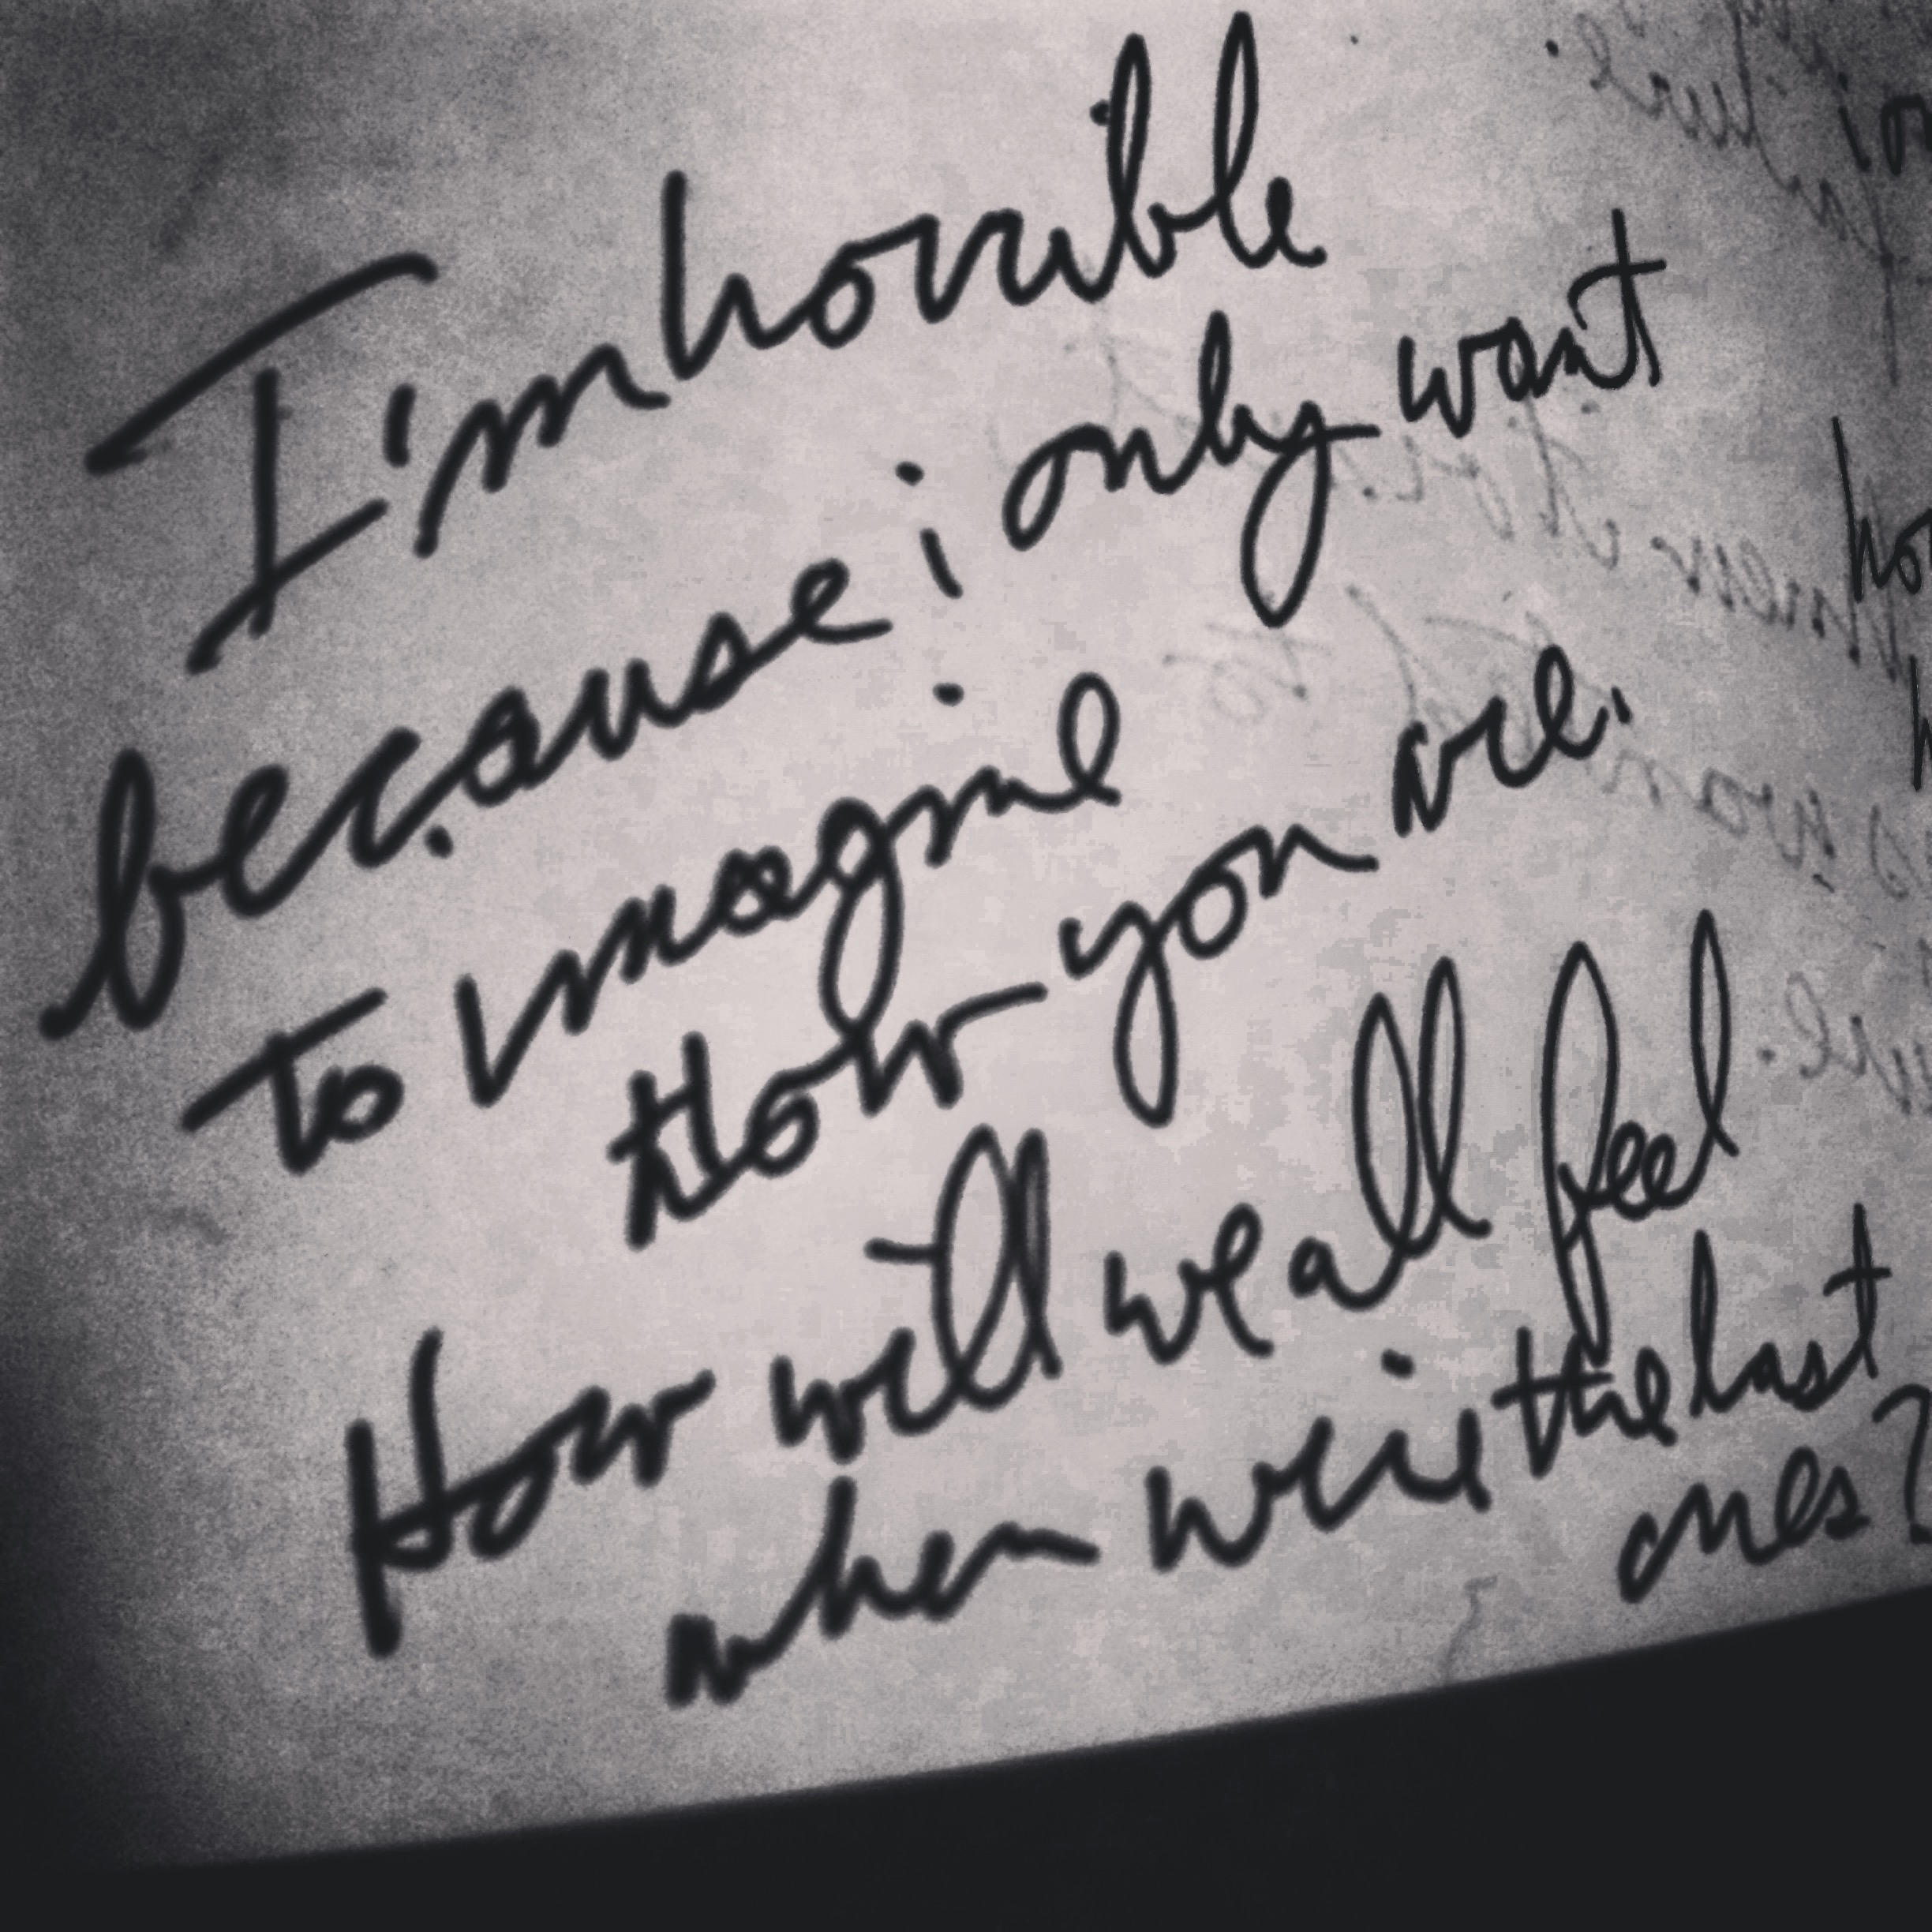 I'm horrible
because i only want
to imagine
How you are.
How will we all feel
when we're the last
ones?